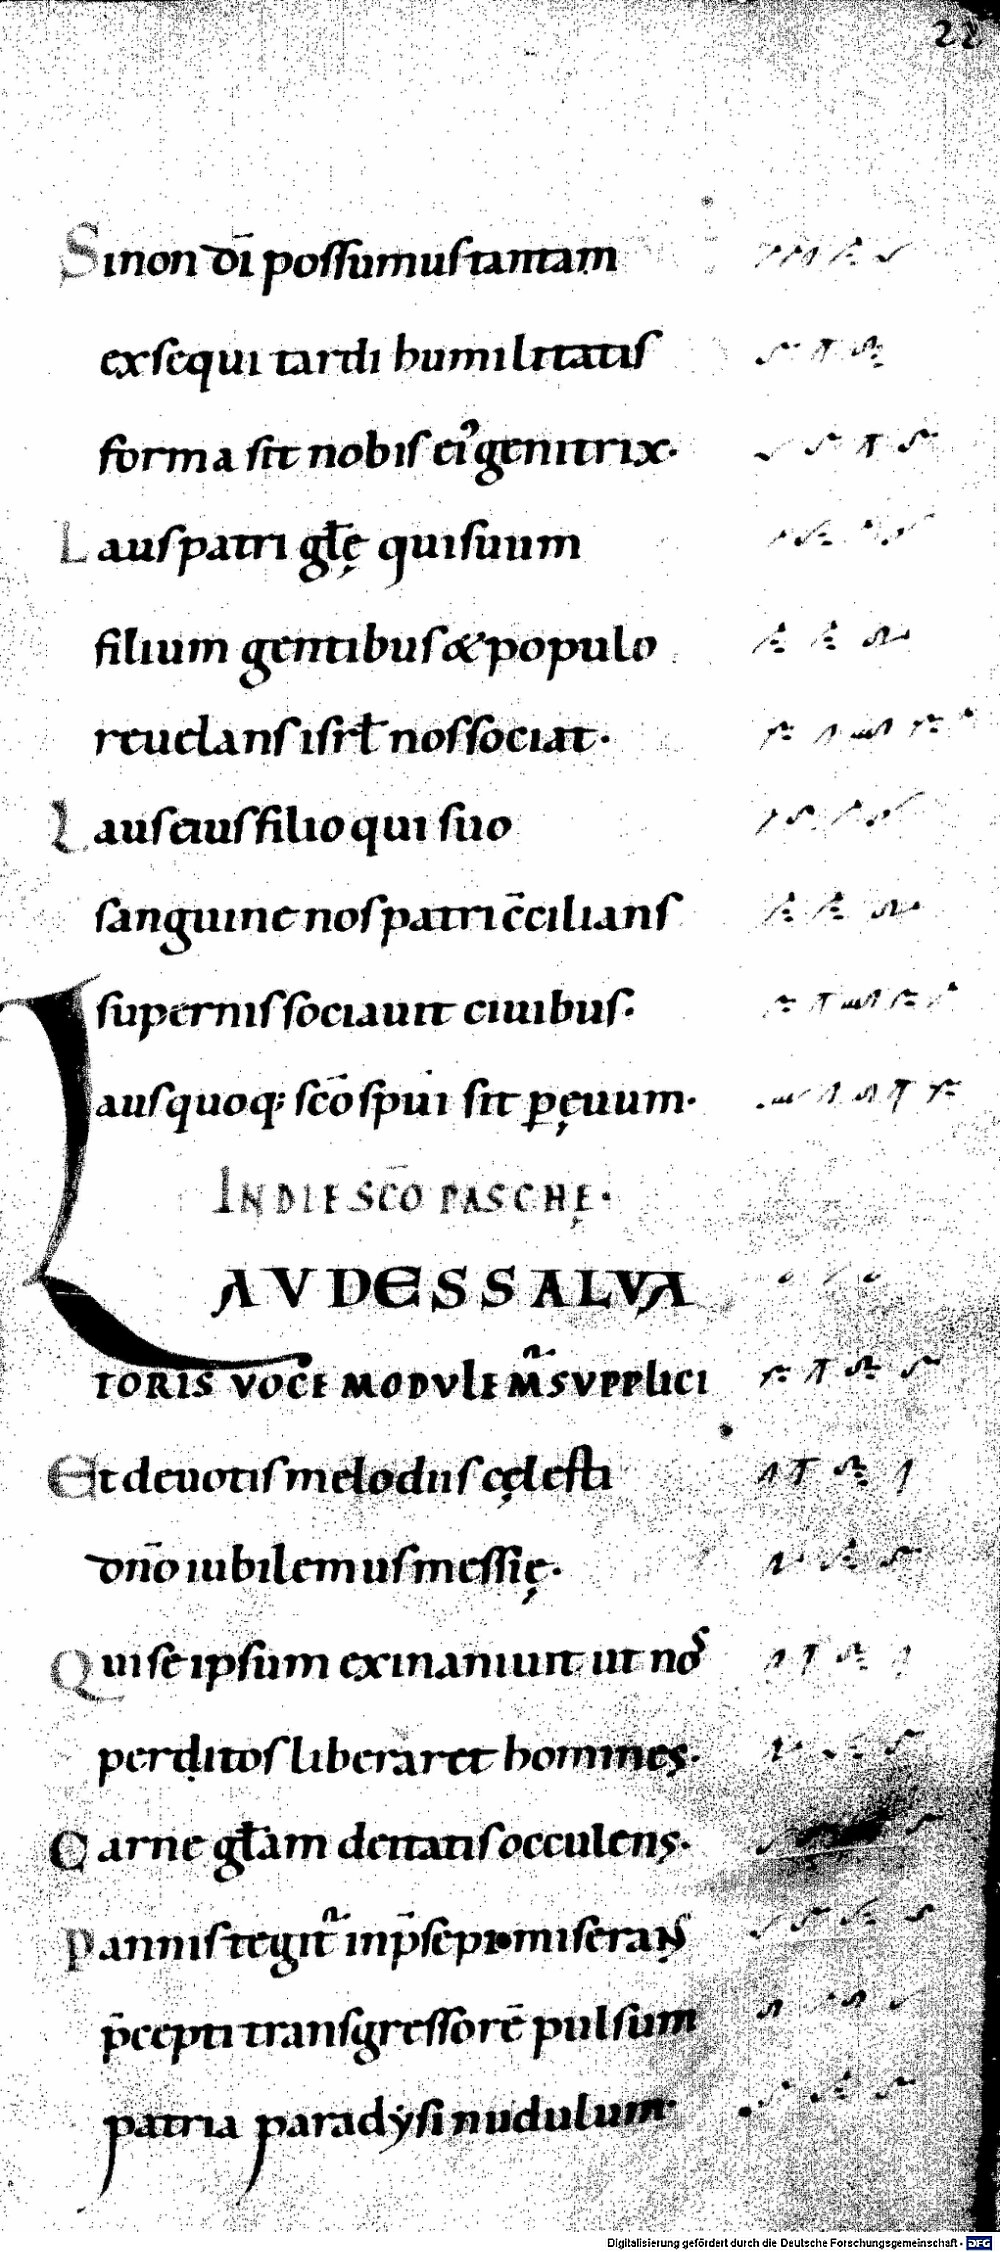 22
Sinon dı̄ possumus tantam
exsequi tardi humilitatis
forma sit nobis ei᾽ genitrix·
Laus patri gl̄ę qui suum
filium gentibus & populo
reuelans isrl̄ nos sociat·
Laus eius filio qui suo
sanguine nos patri c̄cilians
supernis sociauit ciuibus·
Laus quoq; sc̄o sp̄ui sit pęuum·
IN DIE SC̄O PASCHĘ·
AVDES SALVA
TORIS VOCE MODVLEM̃ SVPPLICI
Et deuotis melodiis cęlesti
dn̄o iubilemus messię·
Qui se ipsum exinaniuit ut nos
perditos liberaret homines·
Carne gl̄am deitatis occulens·
Pannis tegit᷑ in p̄sepi· miserans
p̄cepti transgressorē pulsum
patria paradẏsi nudulum·
Digitalisierung gefördert durch die Deutsche Forschungsgemeinschaft - DFG